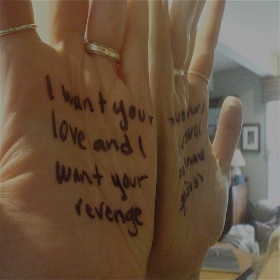 I want your
love and I
want your
revenge